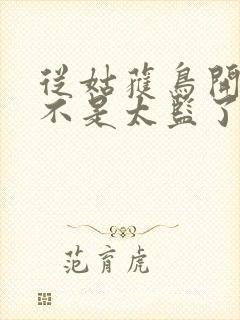 從姑獲鳥開
不是太監了
范育虎